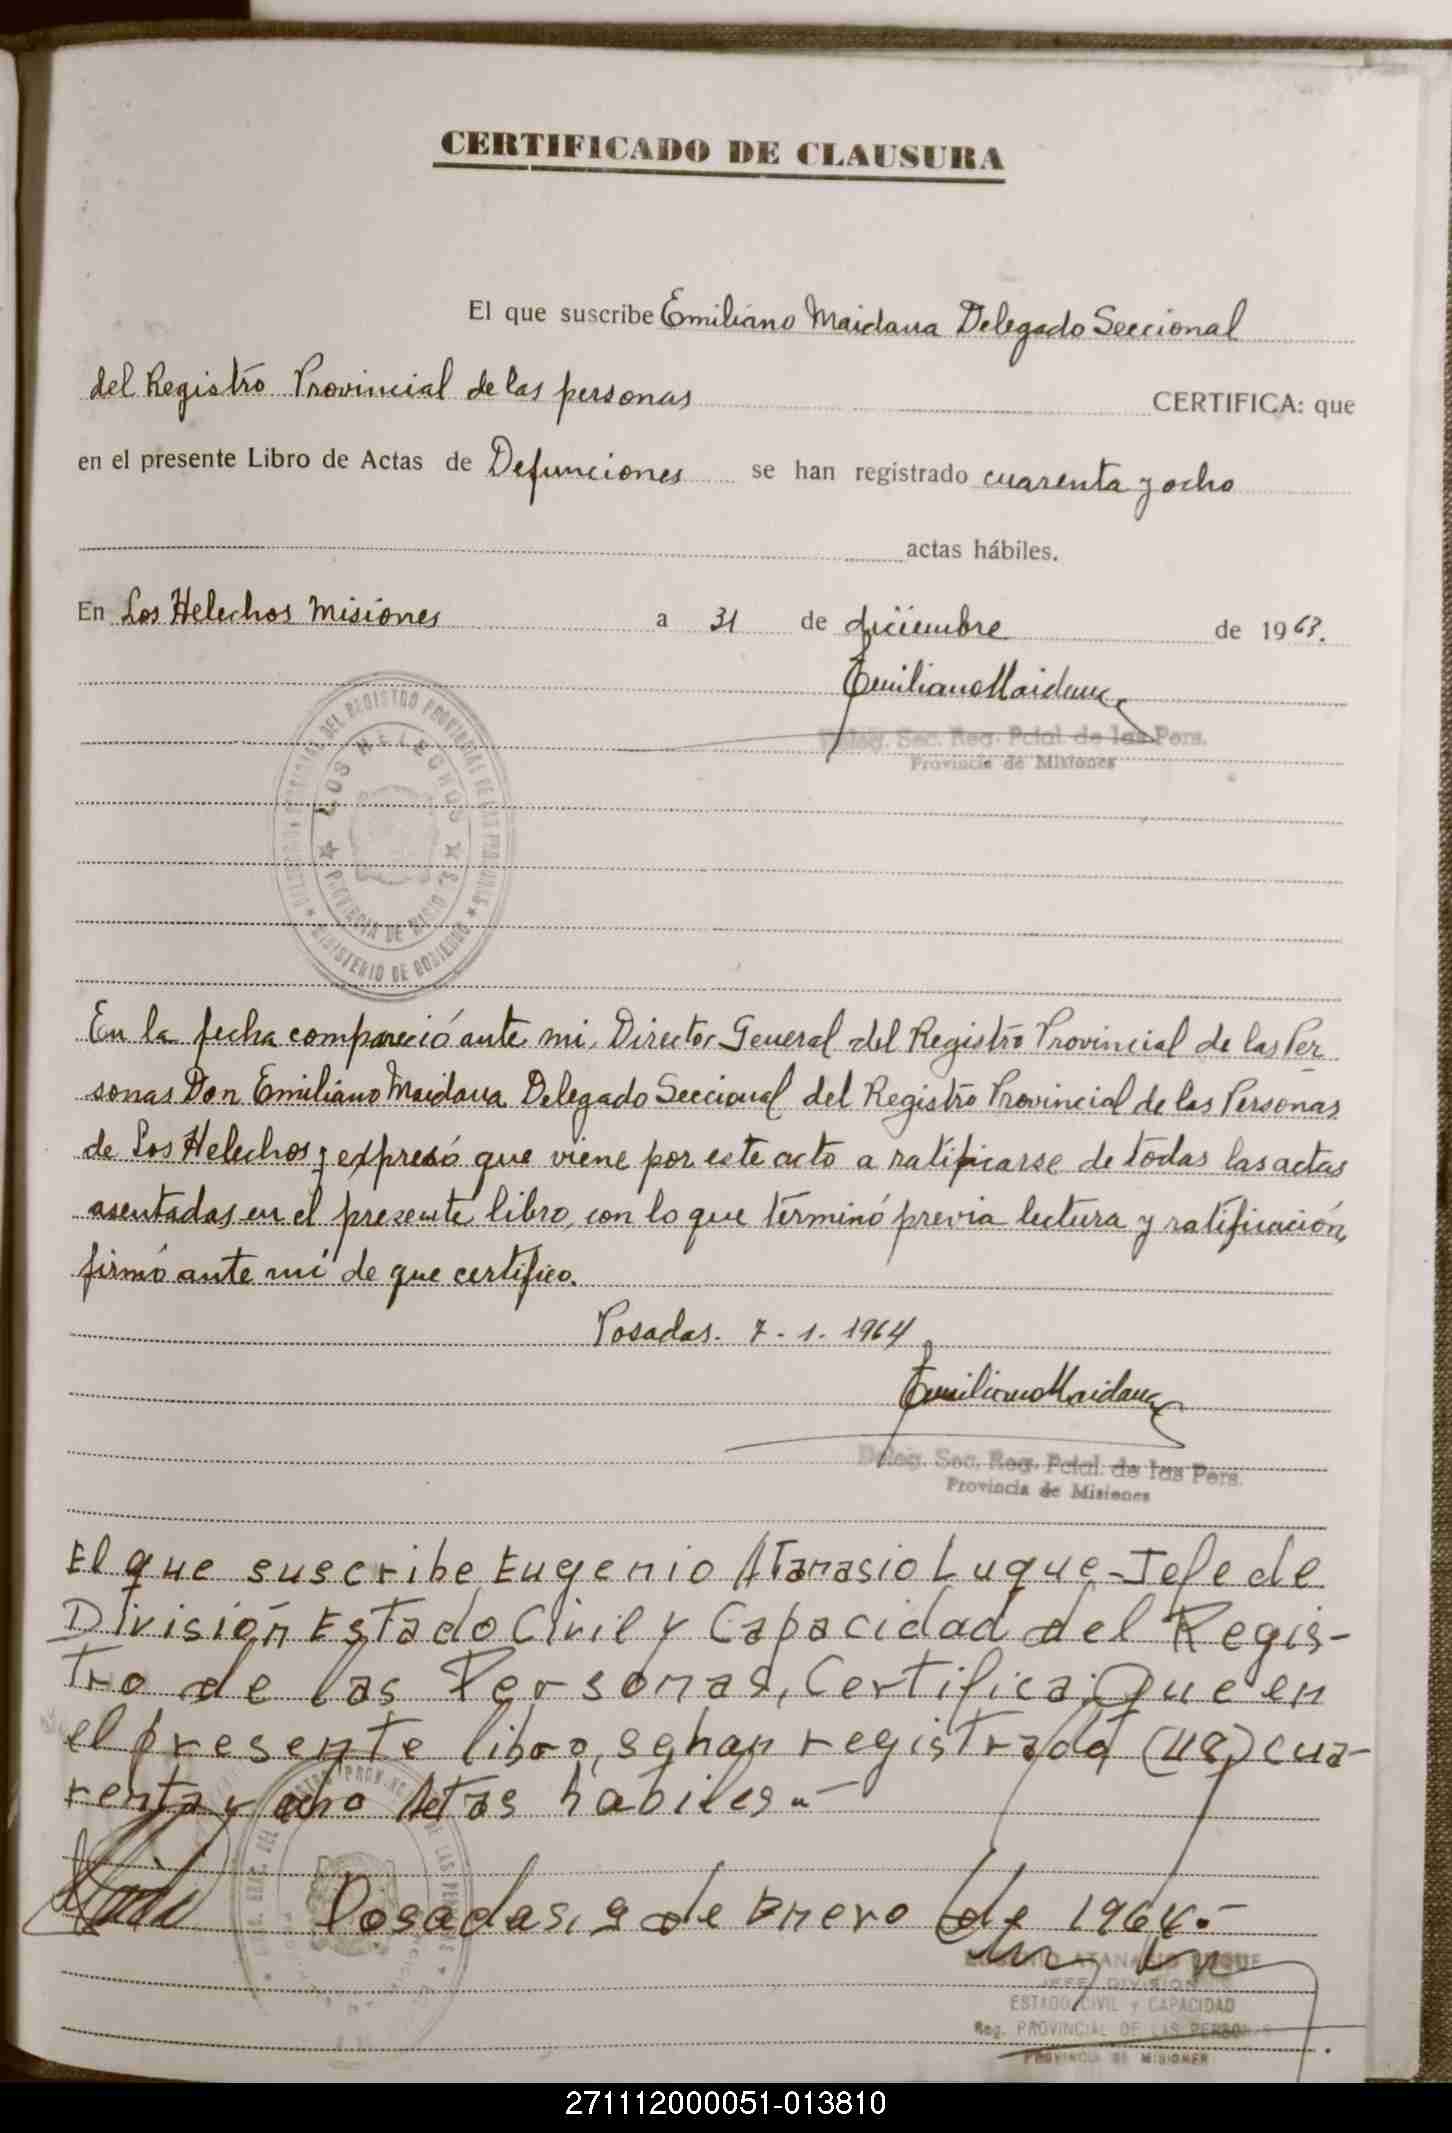 CERTIFICADO DE CLAUSURA
El que suscribe Emiliano Maidana Delegado Seccional
del Registro Provincial de las personas CERTIFICA: que
en el presente Libro de Actas de Defunciones se han registrado cuarenta y ocho
actas hábiles.
En Los Helechos Misiones a 31 de diciembre de 1963.
Emiliano Maidana
Deleg. Sec. Reg. Pcial. de las Pers.
Provincia de Misiones
DEL REGISTRO PROVINCIAL DE LAS PERSONAS
LOS HELECHOS
PROVINCIA DE MISIONES
MINISTERIO DE GOBIERNO
En la fecha compareció ante mi, Director General del Registro Provincial de las Per
sonas Don Emiliano Maidana Delegado Seccional del Registro Provincial de las Personas
de Los Helechos y expresó que viene por este acto a ratificarse de todas las actas
asentadas en el presente libro, con lo que terminó previa lectura y ratificación,
firmó ante mi de que certifico.
Posadas. 7-1-1964
Emiliano Maidana
Deleg. Sec. Reg. Pcial. de las Pers.
Provincia de Misiones
El que suscribe Eugenio Atanasio Luque - Jefe de
División Estado Civil y Capacidad del Regis-
tro de las Personas, Certifica: Que en
el presente libro, se han registrado (48) cua-
renta y ocho Actas hábiles.-
Posadas, 9 de Enero de 1964.-
EUGENIO ATANASIO LUQUE
JEFE DIVISION
ESTADO CIVIL y CAPACIDAD
Reg. PROVINCIAL DE LAS PERSONAS
PROVINCIA DE MISIONES
271112000051-013810